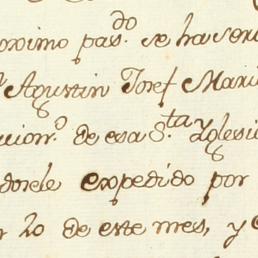 roximo pas.do se ha ser
Agustin Josef Mari
cion.o de esa S.ta Yglesi
dosele expedido por
20 de este mes, y